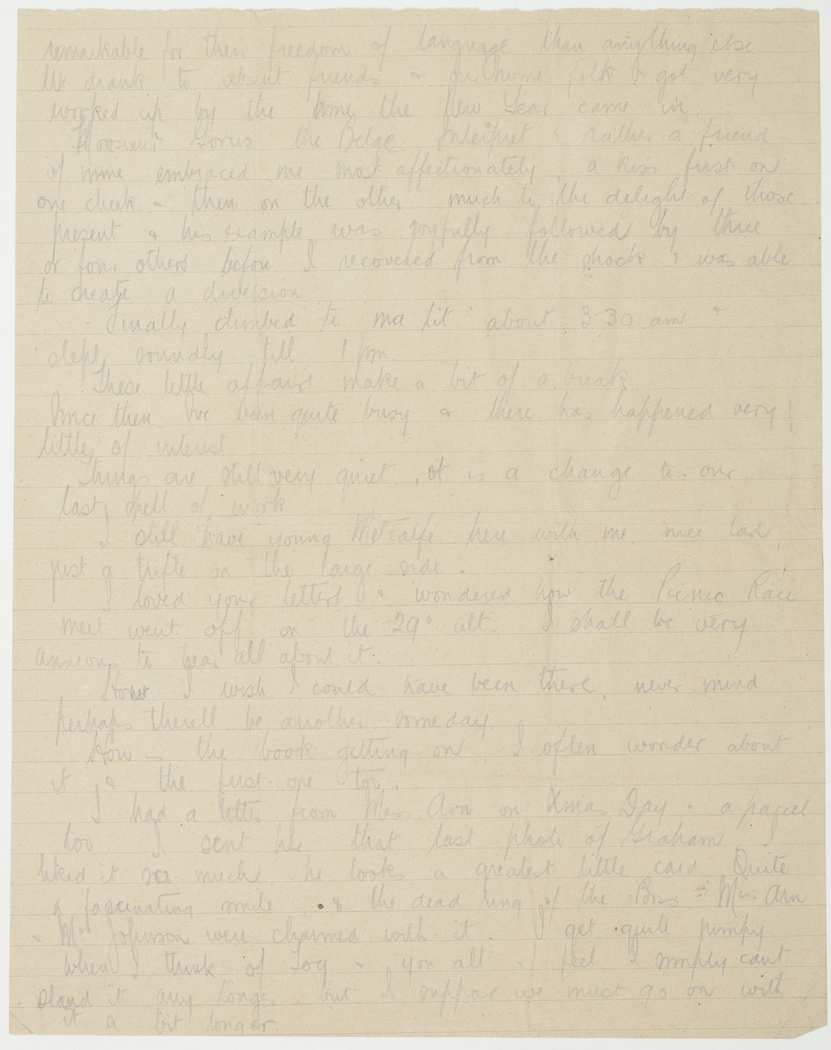 remarkable for their freedom of language than anything else
We drank to absent friends & our home folk & got very
worked up by the time the New Year came in
the Belge Interpret & rather a friend
of mine embraced me most affectionately, a kiss first on
one cheek & then on the other much to the delight of those
present & his example was joyfully followed by three
or four others before I recovered from the shock & was able
to create a diversion
Finally climbed to ma lit about 3.30 am &
slept soundly till 1 pm.
These little affairs make a bit of a break
Since then I've been quite busy & there has happened very
little of interest
Things are still very quiet, it is a change to our
last spell of work
I still have young Metcalfe here with me, nice lad
just a trifle on the large side.
I loved your letters & wondered how the Picnic Race
meet went off on the 29th ult. I shall be very
anxious to hear all about it.
How I wish I could have been there, never mind
perhaps there'll be another some day.
How is the book getting on I often wonder about
it, & the first one too.
I had a letter from Mrs Arn on Xmas Day & a parcel
too I sent her that last photo of Graham I
liked it so much, he looks a greatest little card Quite
a fascinating smile & the dead ring of the Boss. Mrs Arn
& Mrs Johnson were charmed with it. I get quite
when I think of & you all & feel I simply can't
stand it any longer but I suppose we must go on with
it a bit longer.